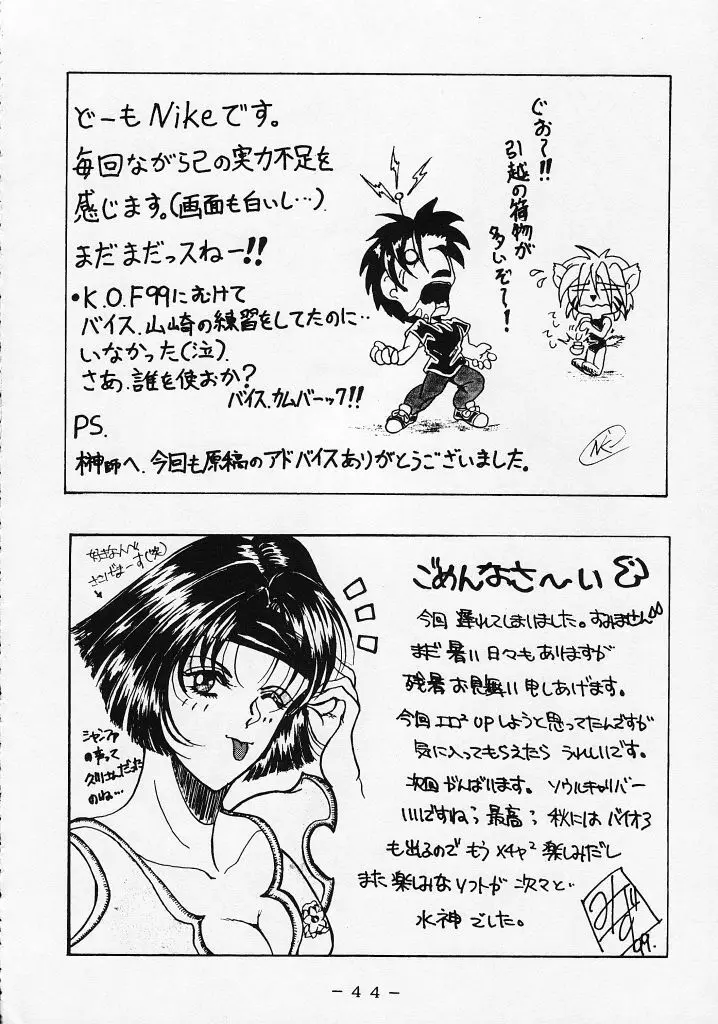 どーもNikeです。
毎回ながら己の実力不足を
感じます。(画面も白いし…).
まだまだっスねー!!
・K.O.F99にむけて
バイス.山崎の練習をしてたのに…
いなかった(泣).
さあ.誰を使おか?
バイス.カムバーック!!
PS.
榊師へ.今回も原稿のアドバイスありがとうございました。
ぐお〜!!
引越の荷物が
多いぞ〜!
てい
てい
好きなんで
ささげまーす(笑)
シャンファ
の声って
久川さんだった
のね…
ごめんなさ〜い
今回 遅れてしまいました。すみません
まだ暑い日々もありますが
残暑お見舞い申しあげます。
今回エロ²UPしようと思ってたんですが
気に入ってもらえたら うれしいです。
次回がんばります。 ソウルキャリバー
いいですね 最高 秋にはバイオ3
も出るので もうメチャ²楽しみだし
また楽しみなソフトが 次々と
水神でした。
みず
99.
- 44 -